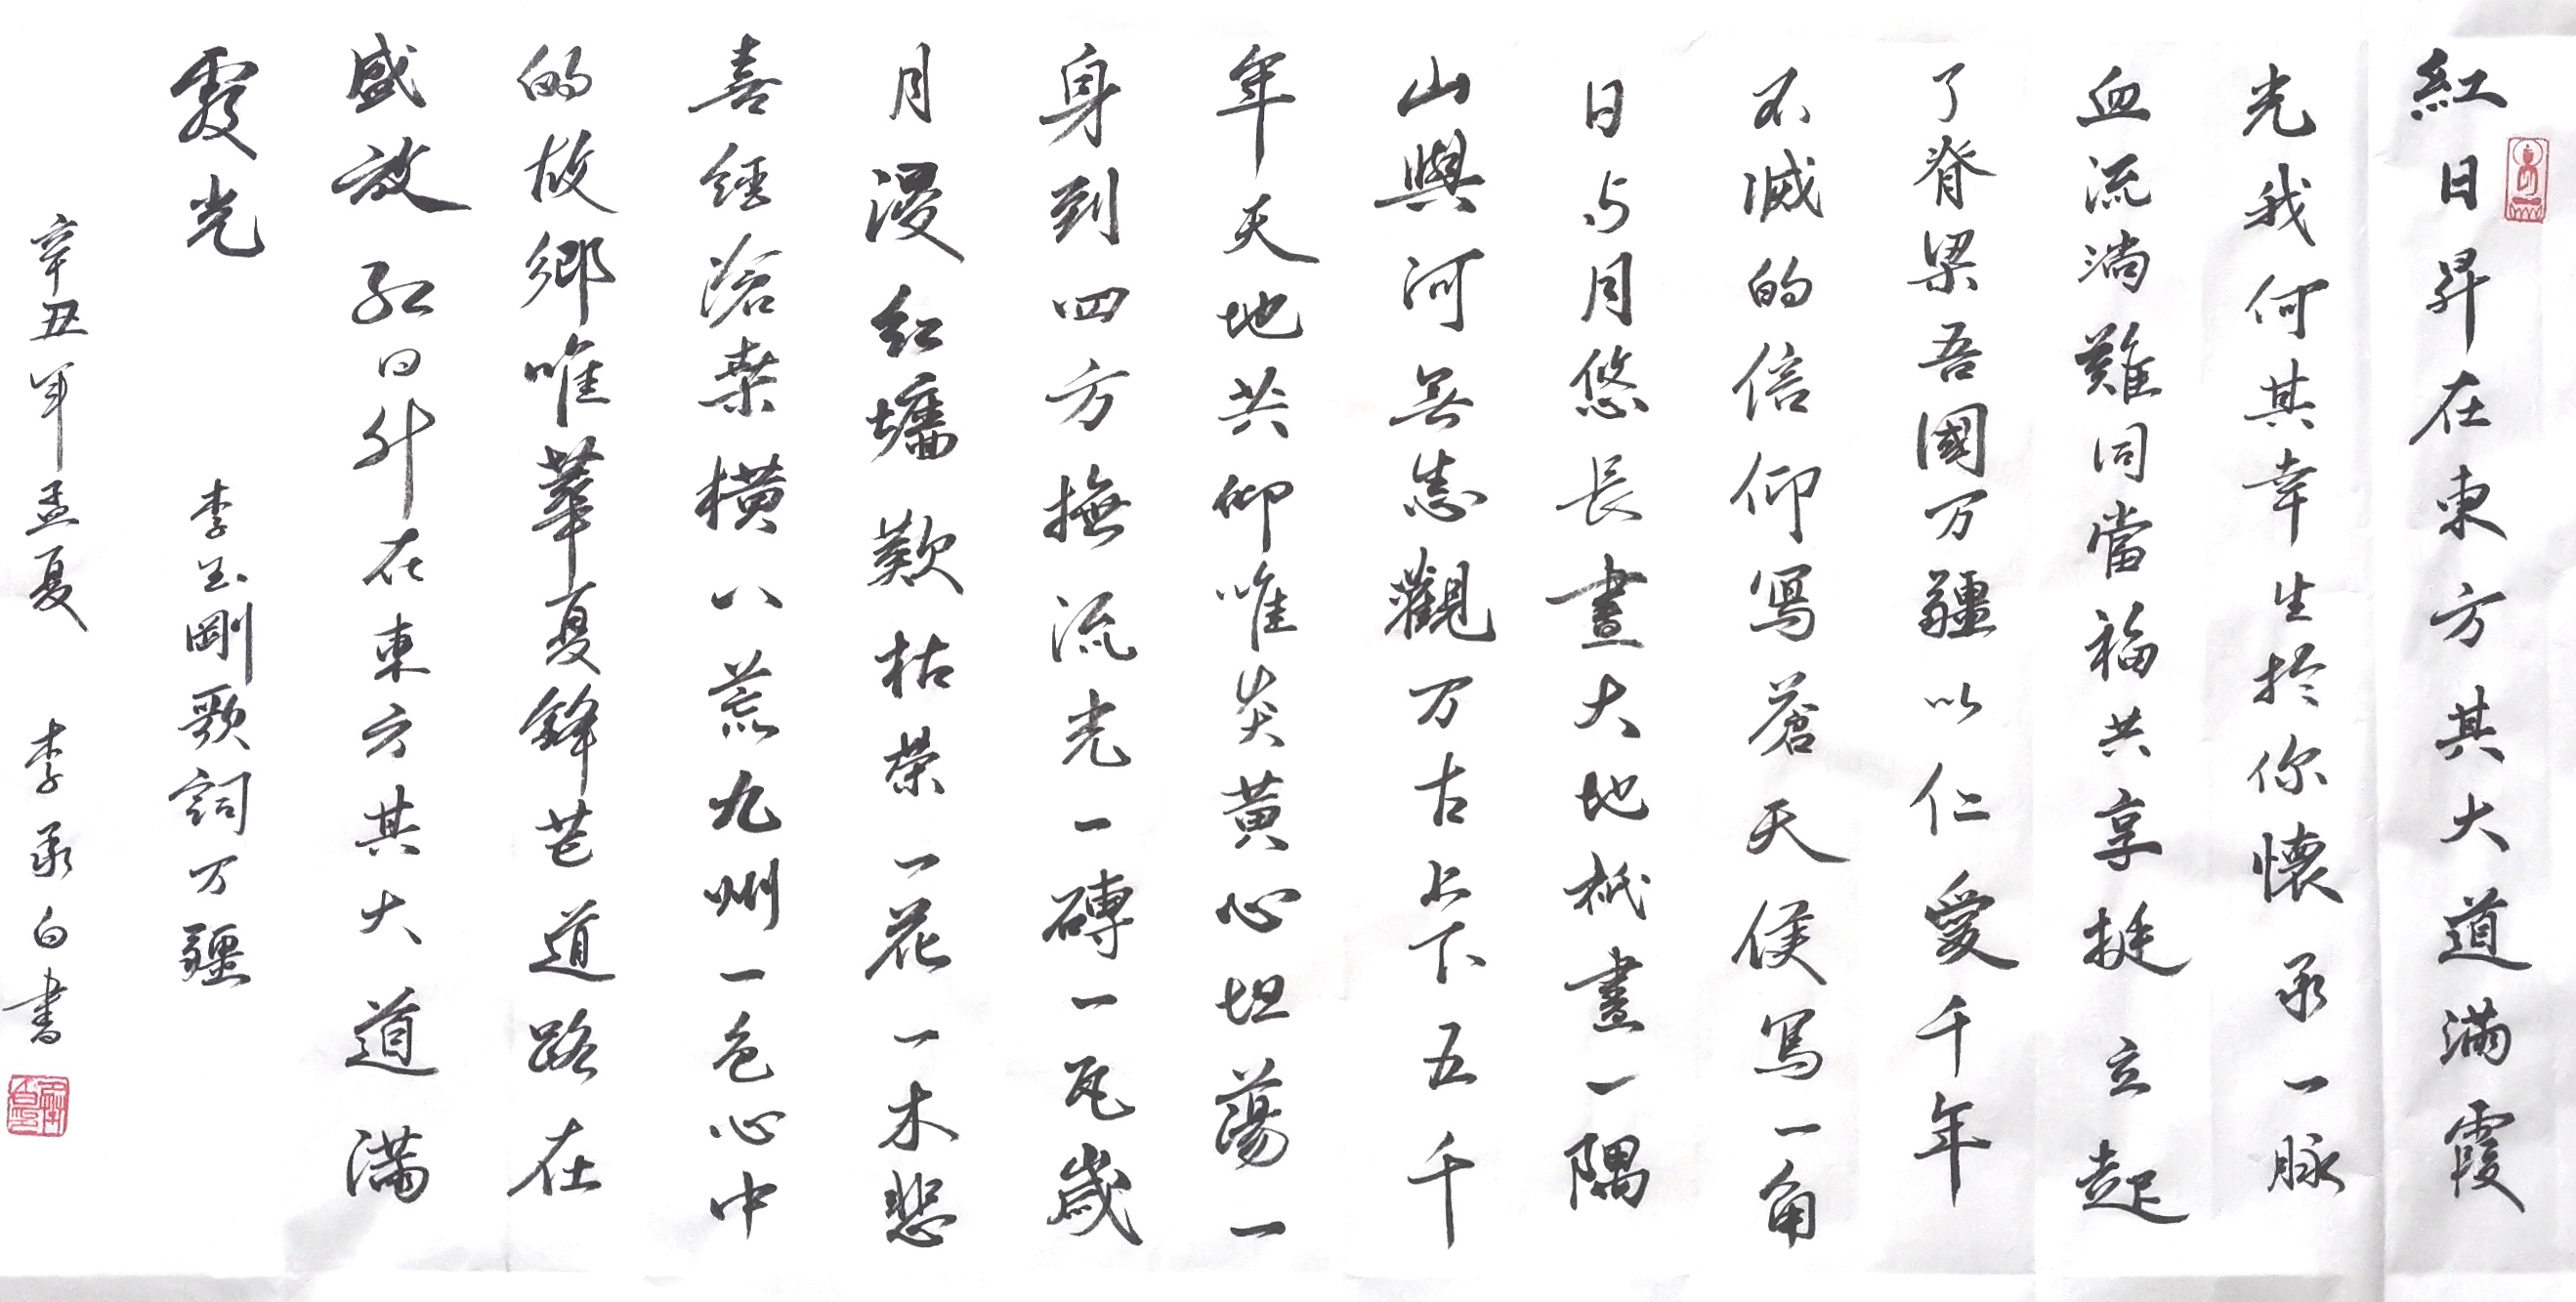 紅日昇在東方其大道滿霞
光我何其幸生於你懷承一脉
血流淌難同當福共享挺立起
了脊梁吾國万疆以仁愛千年
不滅的信仰寫蒼天侯寫一角
日与月悠長畫大地祇畫一隅
山與河無恙觀万古上下五千
年天地共仰唯炎黄心坦蕩一
身到四方撫流光一磚一瓦歲
月漫紅墻歎枯榮一花一木悲
喜經滄桒横八荒九州一色心中
的故鄉唯華夏鋒芒道路在
盛放红日升在東方其大道满
霞光
李玉剛歌詞万疆
辛丑年孟夏 李承白書